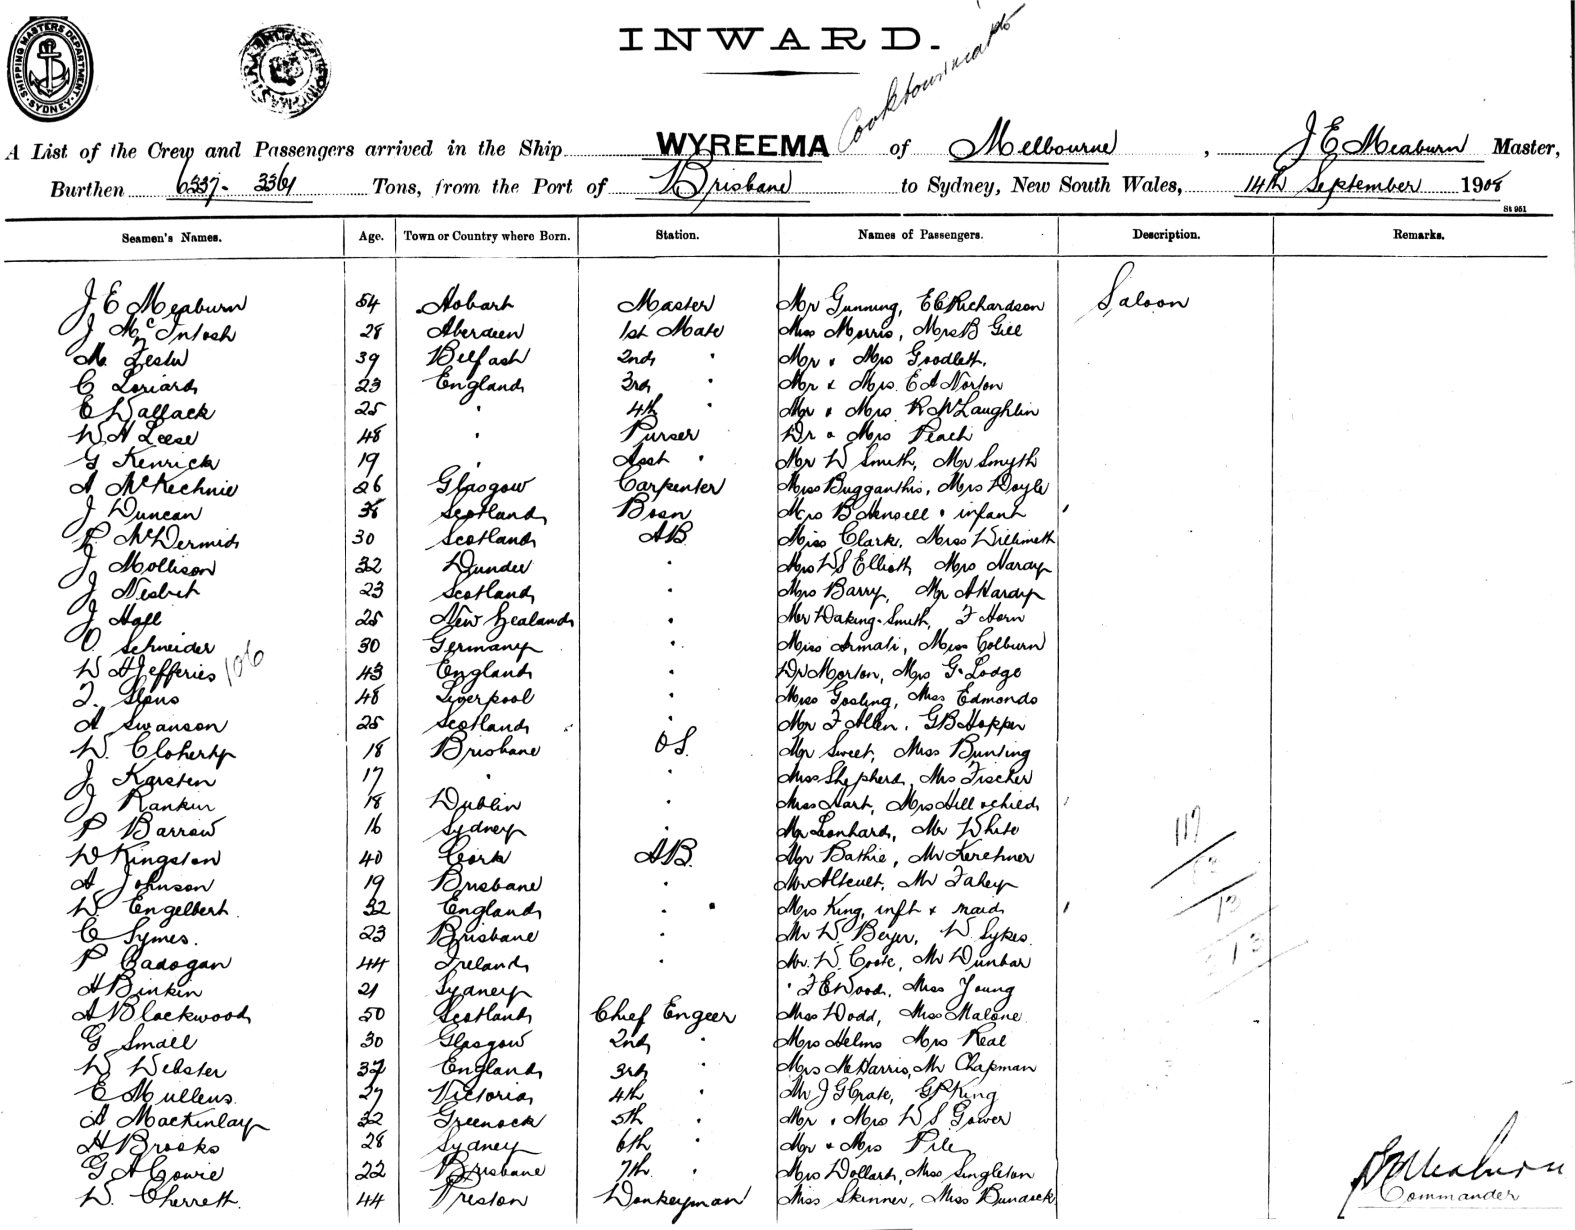 INWARD.
SHIPPING MASTERS DEPARTMENT SYDNEY
A List of the Crew and Passengers arrived in the Ship WYREEMA of Melbourne, J E Meaburn Master,
Burthen 6337 - 3361 Tons, from the Port of Brisbane to Sydney, New South Wales, 14th September 1908
St 951
Seamen's Names. Age. Town or Country where Born. Station. Names of Passengers. Description. Remarks.
J E Meaburn 54 Hobart Master Mr Gunning, E C Richardson Saloon
J McIntosh 28 Aberdeen 1st Mate Miss Morris, Mrs B Gill
M. Lester 39 Belfast 2nd " Mr & Mrs Goodlett.
C Loriard 23 England 3rd " Mr & Mrs E A Norton
E Wallack 25 " 4th " Mr & Mrs R McLaughlin
W H Leese 48 " Purser Dr & Mrs Peach
G Kenrick 19 " Asst " Mr W Smith, Mr Smyth
A McKechnie 26 Glasgow Carpenter Miss Bugganthis, Mrs Doyle
J Duncan 38 Scotland Bosn Mrs B Hensell & infant
P McDermid 30 Scotland AB Miss Clark, Miss Willimett
J Mollison 32 Dundee " Mrs W S Elliott, Mrs Hardy
J Nesbit 23 Scotland " Mrs Barry, Mr A Hardy
J Hall 25 New Zealand " Mr Daking-Smith, F Horn
O Schneider 30 Germany " Miss Armati, Miss Colburn
W H Jefferies 106 43 England " Dr Morton, Mrs G. Lodge
48 Liverpool " Miss Gosling, Miss Edmonds
A Swanson 25 Scotland " Mr F Allen, G B Hopper
W. Cloherty 18 Brisbane OS. Mr Sweet, Miss Bunting
J Karsten 17 " " Miss Shepherd, Mrs Fischer
J Rankin 18 Dublin " Miss Hart, Mrs Hill & child
P Barrow 16 Sydney " Mr Leonhard, Mr White
W Kingston 40 Cork AB. Mr Bathie, Mr Kerchner
A Johnson 19 Brisbane " Mr Altcult, Mr Fahey
W. Engelbert 32 England " Mrs King, inft & maid
C Symes. 23 Brisbane " Mr W. Beyer, W. Sykes.
P Cadogan 44 Ireland " Mr. W. Coote, Mr Dunbar
H Binkin 21 Sydney " F E Wood, Miss Young
A Blackwood 50 Scotland Chief Engeer Miss Dodd, Miss Malone.
G Small 30 Glasgow 2nd " Mrs Helms Mrs Real
W Webster 37 England 3rd " Mrs McHarris, Mr Chapman
E Mullens. 27 Victoria 4th " Mr J G Crate, G P King
A Mackinlay 32 Greenock 5th " Mr & Mrs W S Gower
H Brooks 28 Sydney 6th " Mr & Mrs Pile
G A Cowie 22 Brisbane 7th " Mrs Dollard, Miss Singleton
W. Cherrett. 44 Preston Donkeyman Miss Skinner, Miss Bundock
117
13
13
J E Meaburn
Commander